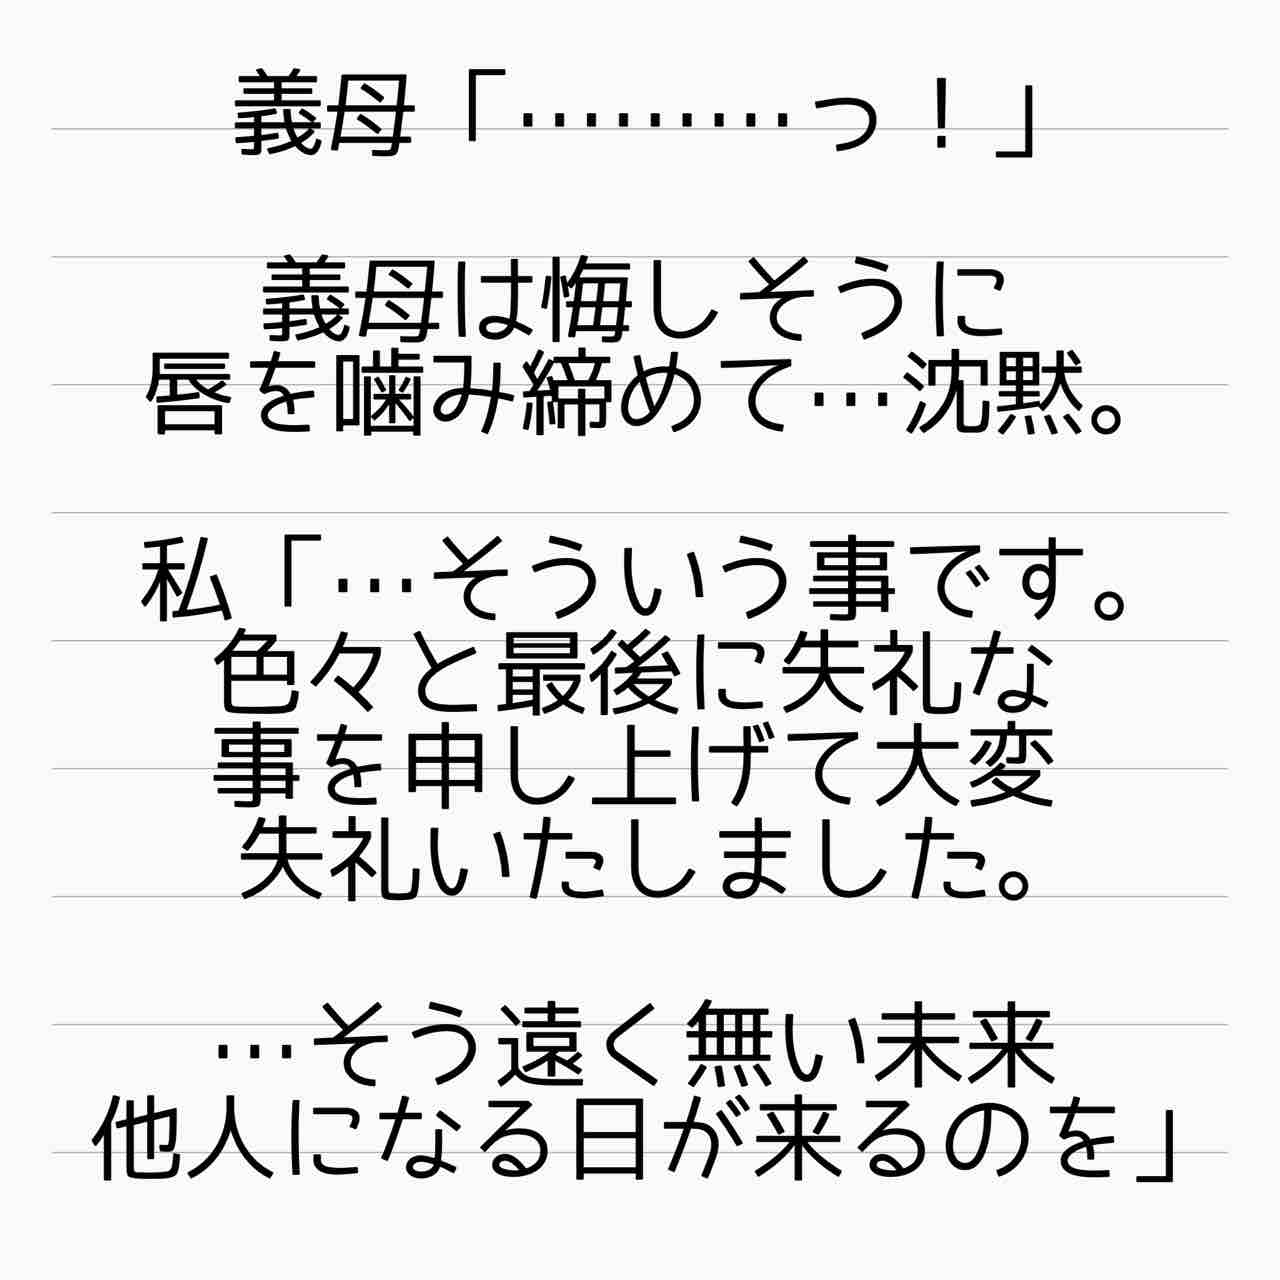 義母「………っ！」
義母は悔しそうに
唇を噛み締めて…沈黙。
私「…そういう事です。
色々と最後に失礼な
事を申し上げて大変
失礼いたしました。
…そう遠く無い未来
他人になる日が来るのを」